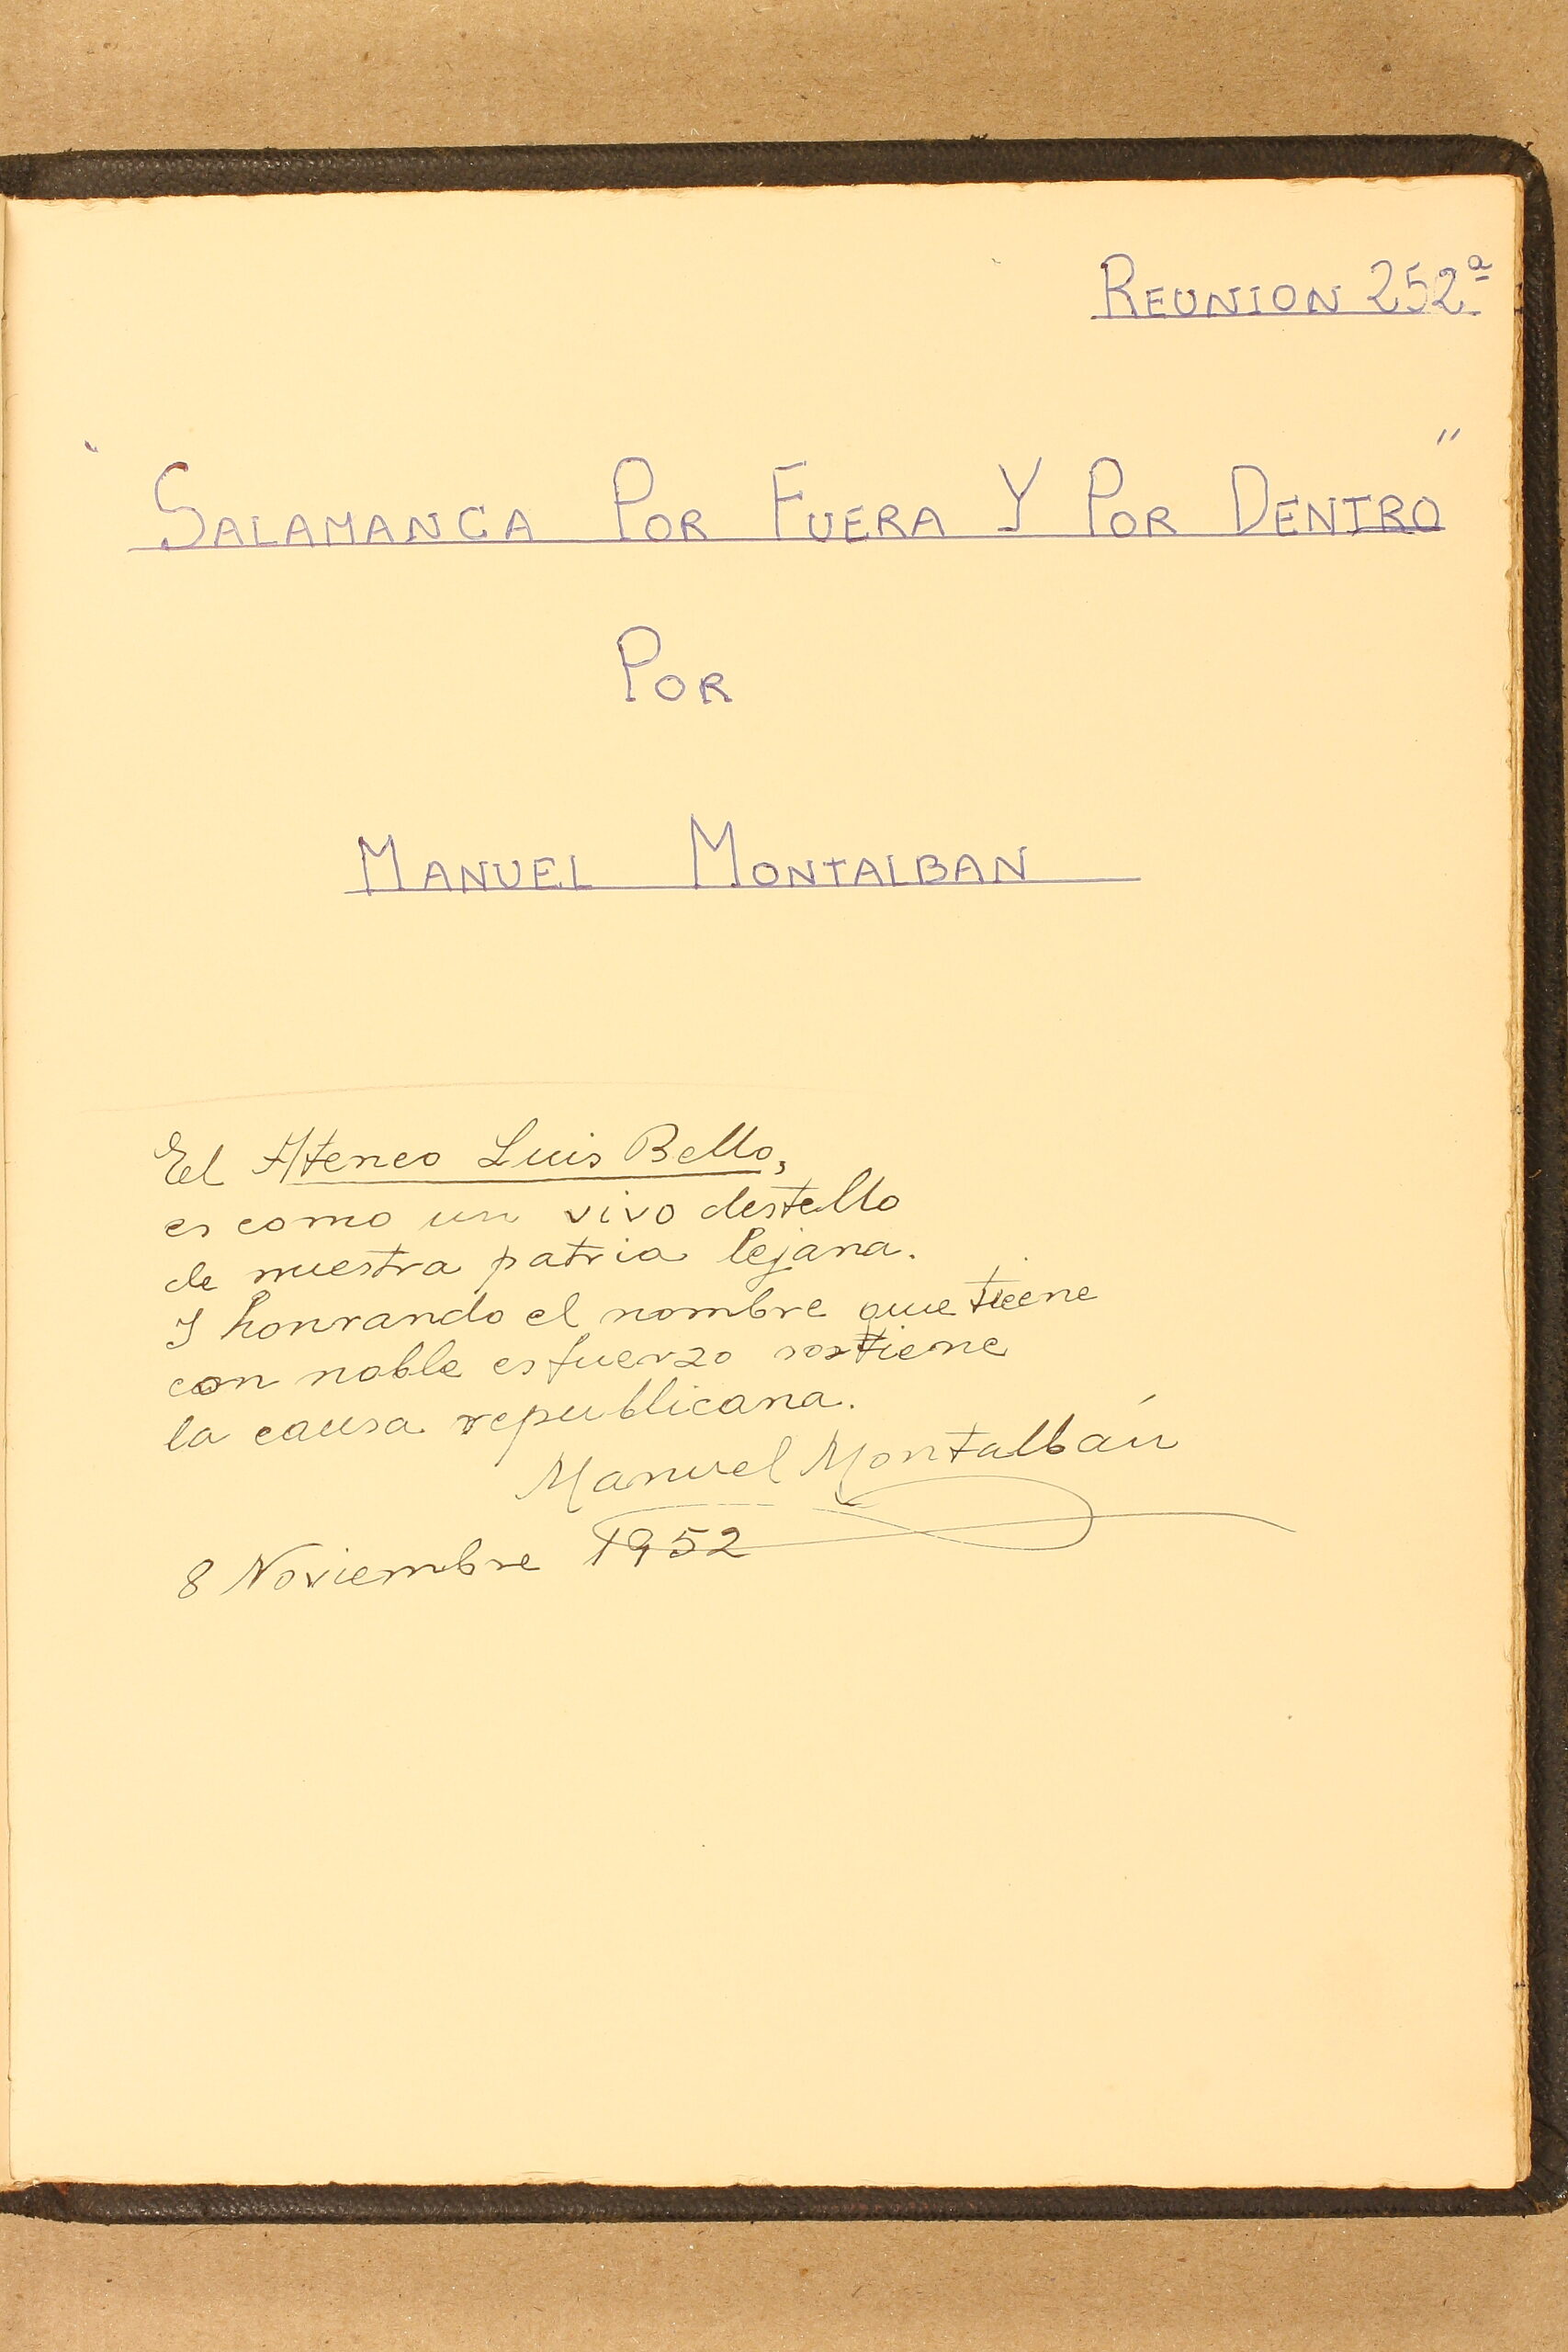 REUNION 252ª
" SALAMANCA POR FUERA Y POR DENTRO "
POR
MANUEL MONTALBAN
El Ateneo Luis Bello,
es como un vivo destello
de nuestra patria lejana.
Y honrando el nombre que tiene
con noble esfuerzo sostiene
la causa republicana.
Manuel Montalbán
8 Noviembre 1952